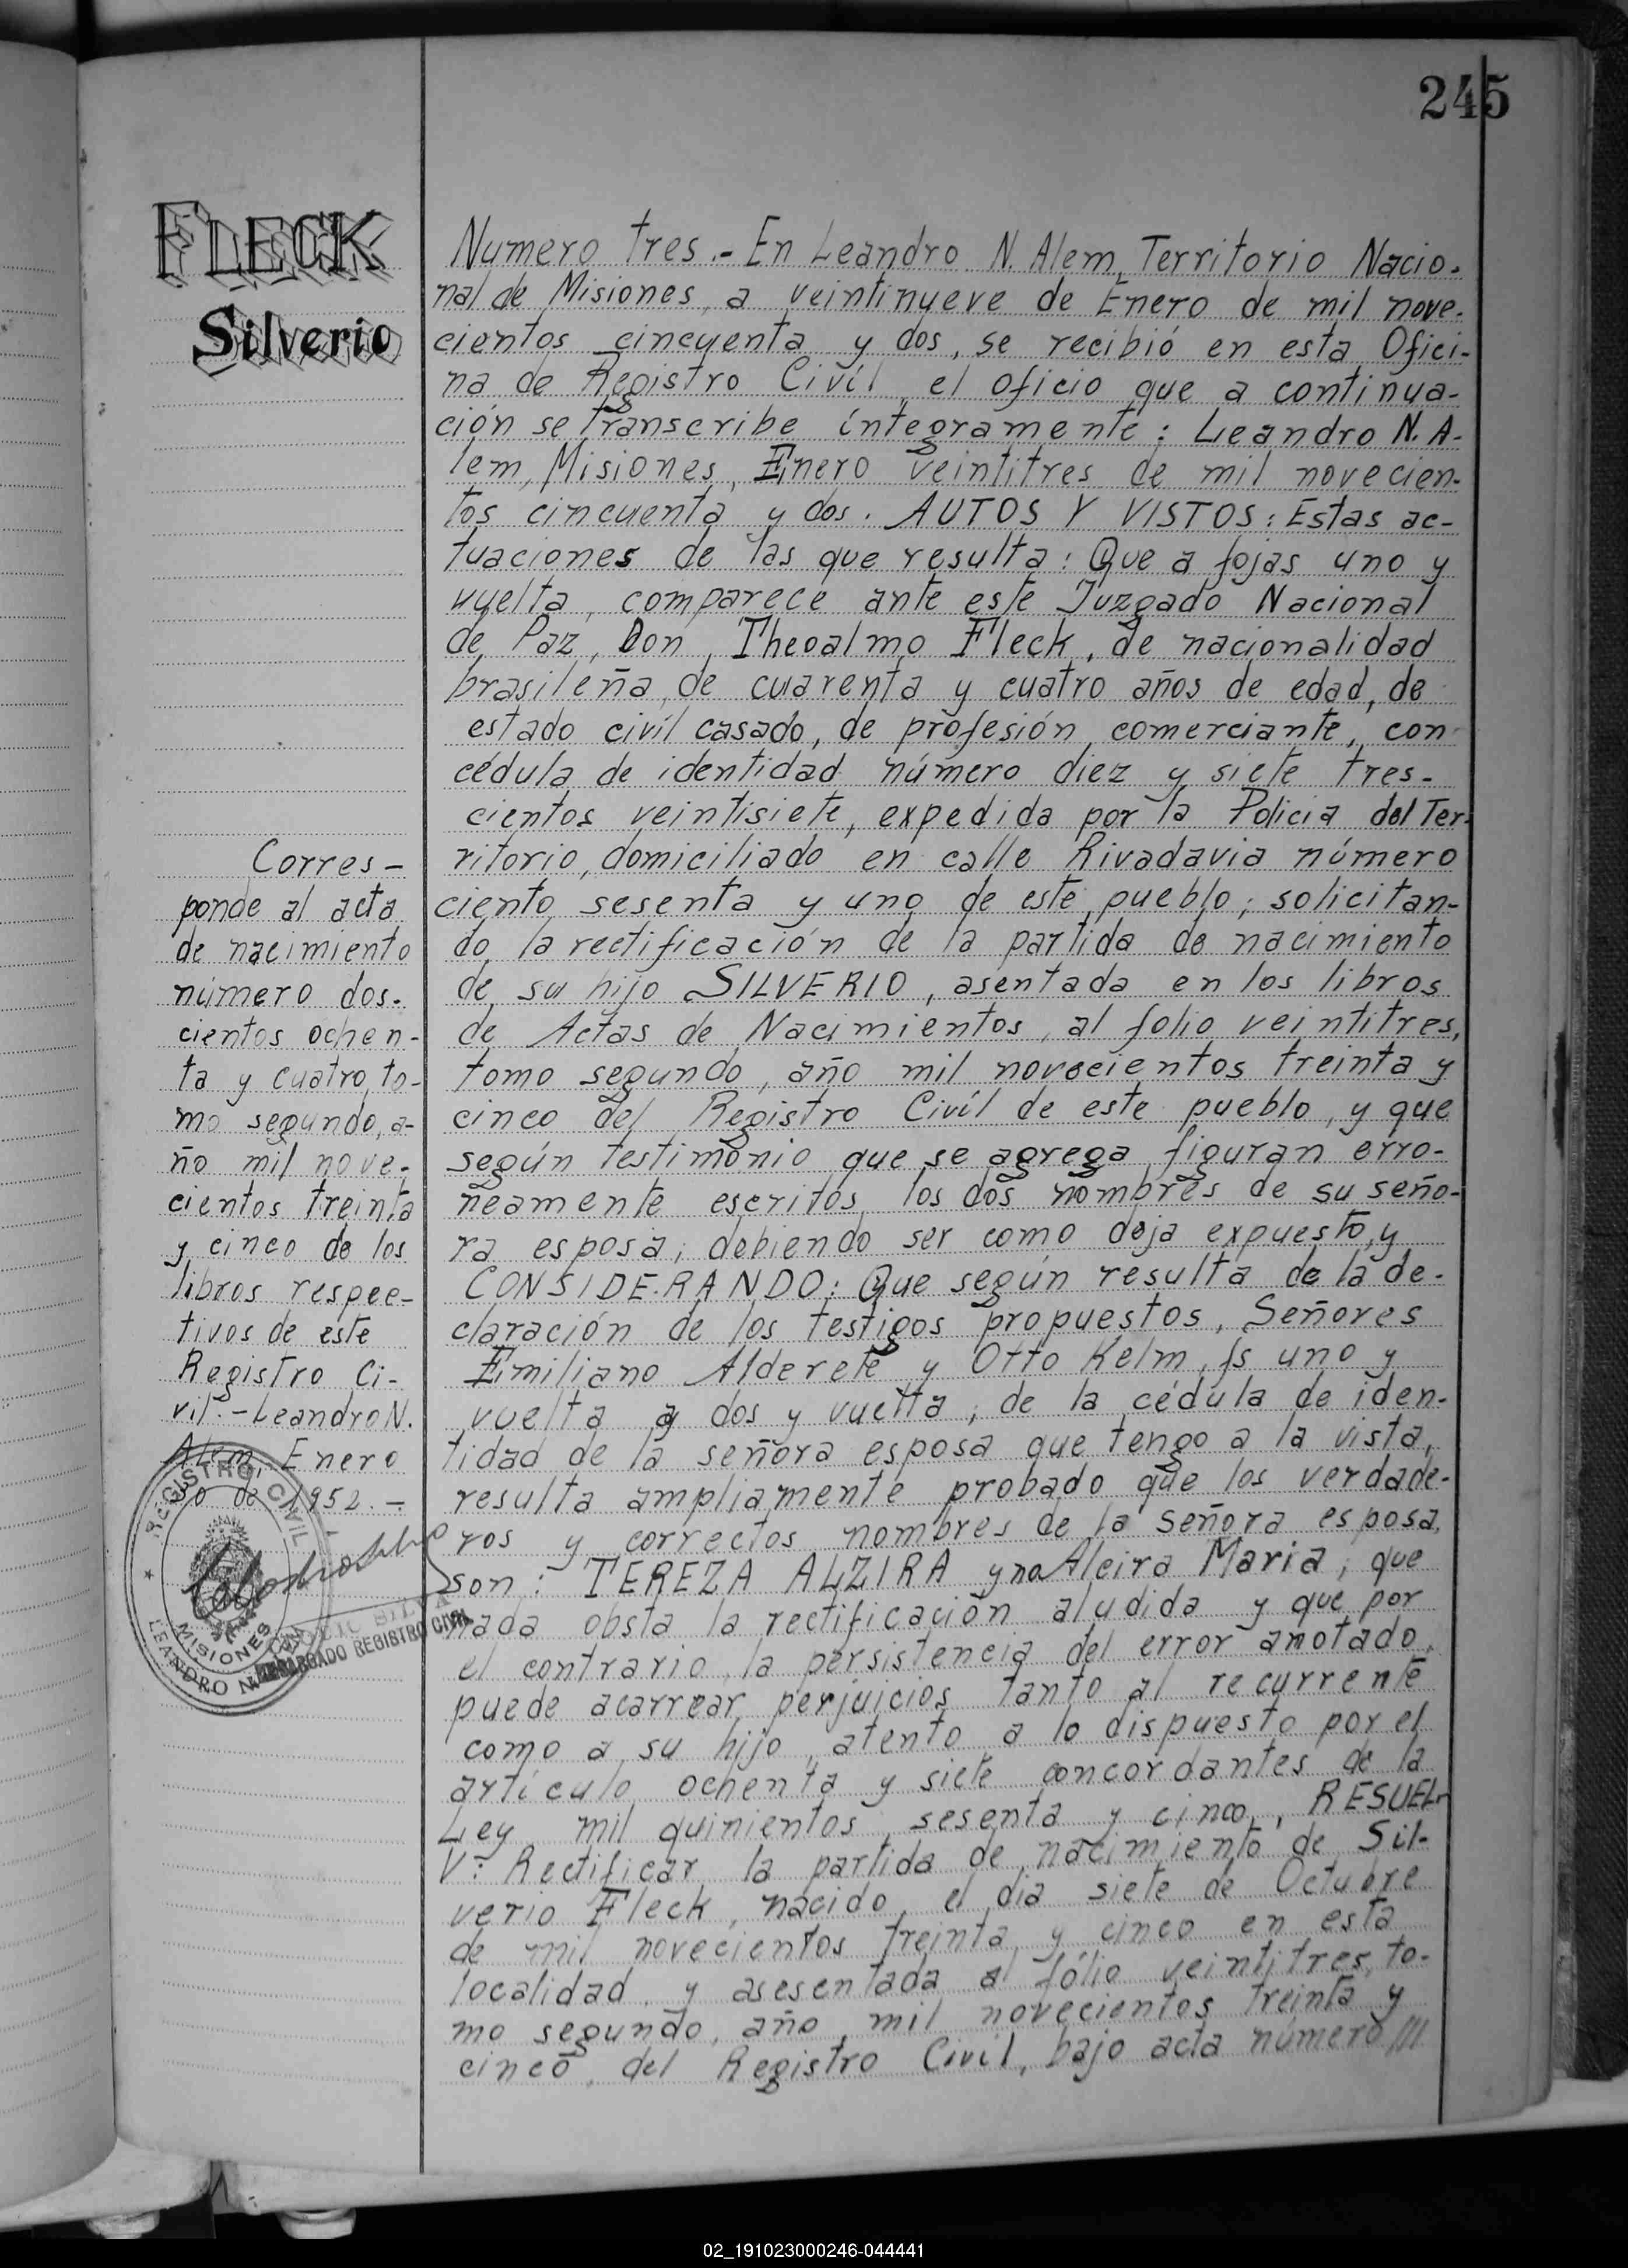 245
FLECK
Silverio
Numero tres.- En Leandro N. Alem, Territorio Nacio-
nal de Misiones, a veintinueve de Enero de mil nove-
cientos cincuenta y dos, se recibió en esta Ofici-
na de Registro Civíl, el oficio que a continua-
ción se transcribe íntegramente: Leandro N. A-
lem, Misiones, Enero veintitres de mil novecien-
tos cincuenta y dos. AUTOS Y VISTOS: Estas ac-
tuaciones de las que resulta: Que a fojas uno y
vuelta, comparece ante este Juzgado Nacional
de Paz, Don, Theoalmo Fleck, de nacionalidad
brasileña, de cuarenta y cuatro años de edad, de
estado civíl casado, de profesión, comerciante, con
cédula de identidad número diez y siete tres-
cientos veintisiete, expedida por la Policia del Ter-
ritorio, domiciliado en calle Rivadavia número
ciento sesenta y uno de este pueblo; solicitan-
do la rectificación de la partida de nacimiento
de su hijo SILVERIO, asentada en los libros
de Actas de Nacimientos, al folio veintitres,
tomo segundo, año mil novecientos treinta y
cinco del Registro Civíl de este pueblo, y que
según testimonio que se agrega figuran erro-
neamente escritos, los dos nombres de su seño-
ra esposa; debiendo ser como deja expuesto, y
CONSIDERANDO: Que según resulta de la de-
claración de los testigos propuestos, Señores
Emiliano Alderete y Otto Kelm, fs uno y
vuelta a dos y vuelta; de la cédula de iden-
tidad de la señora esposa que tengo a la vista,
resulta ampliamente probado que los verdade-
ros y correctos nombres de la señora esposa,
son: TEREZA ALZIRA y no Alcira Maria; que
nada obsta la rectificación aludida y que por
el contrario, la persistencia del error anotado,
puede acarrear perjuicios tanto al recurrente
como a su hijo, atento a lo dispuesto por el
artículo ochenta y siete concordantes de la
Ley mil quinientos sesenta y cinco, RESUEL-
V: Rectificar la partida de nacimiento de Sil-
verio Fleck, nacido el dia siete de Octubre
de mil novecientos treinta y cinco en esta
localidad y asesentada al fólio veintitres, to-
mo segundo, año mil novecientos treinta y
cinco, del Registro Civíl, bajo acta número ///
Corres-
ponde al acta
de nacimiento
número dos-
cientos ochen-
ta y cuatro, to-
mo segundo, a-
ño mil nove-
cientos treinta
y cinco de los
libros respec-
tivos de este
Registro Ci-
vil.- Leandro N.
Alem, Enero
30 de 1952.-
REGISTRO CIVIL
MISIONES
LEANDRO N.
ENCARGADO REGISTRO CIVIL
02_191023000246-044441